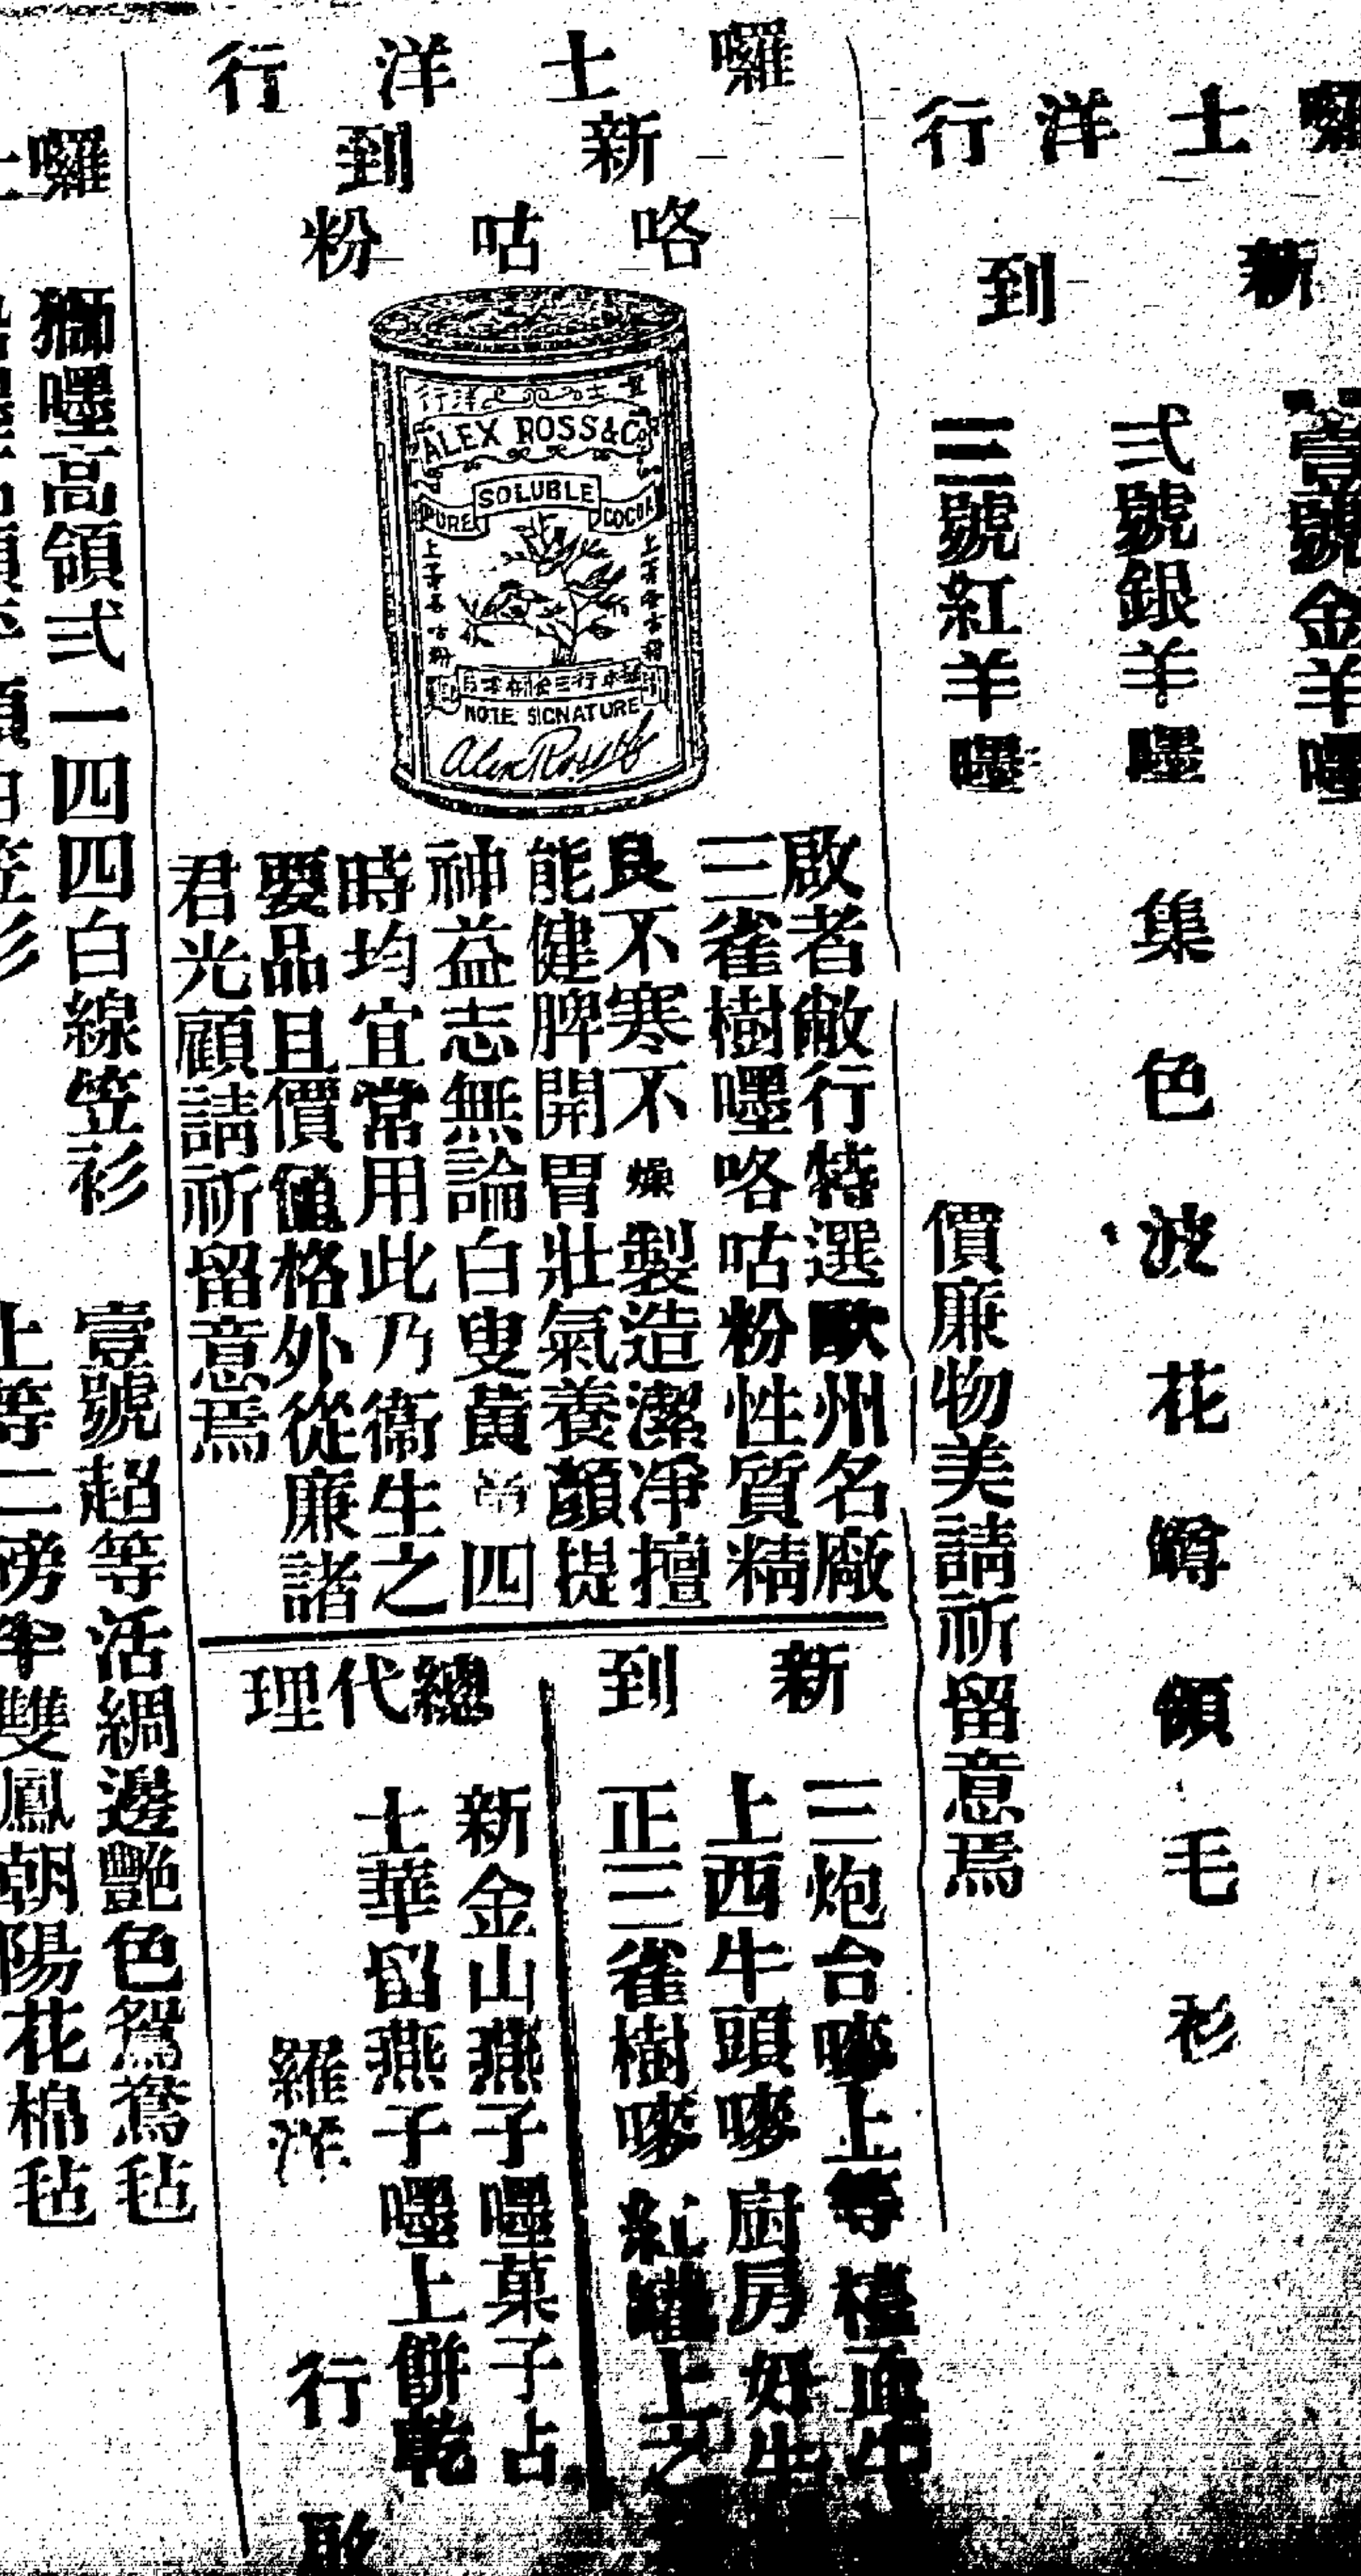 囉士洋行
新到
金羊嘜
弍號銀羊嘜
三號紅羊嘜
集色波花罇領毛衫
價廉物美請祈留意焉
囉士洋行
新到
咯咕粉
ALEX ROSS & Co
PURE SOLUBLE COCOA
NOTE SIGNATURE
Alex Ross
啟者敝行特選歐州名廠
三雀樹嘜咯咕粉性質精
良不寒不燥製造潔凈擅
能健脾開胃壯氣養顏提
神益志無論白叟黃 四
時均宜常用此乃衞生之
要品且價值格外從廉諸
君光顧請祈留意焉
新到
三炮台嘜上等 面牛
上西牛頭嘜厨房好牛
正三雀樹嘜紅罐上之
總代理
新金山燕子嘜菓子占
士華留燕子嘜上餅乾
羅洋行啟
囉士
獅嘜高領弍一四四白線笠衫
壹號超等活綢邊艷色鴛鴦毡
上等二磅半雙鳳朝陽花棉毡